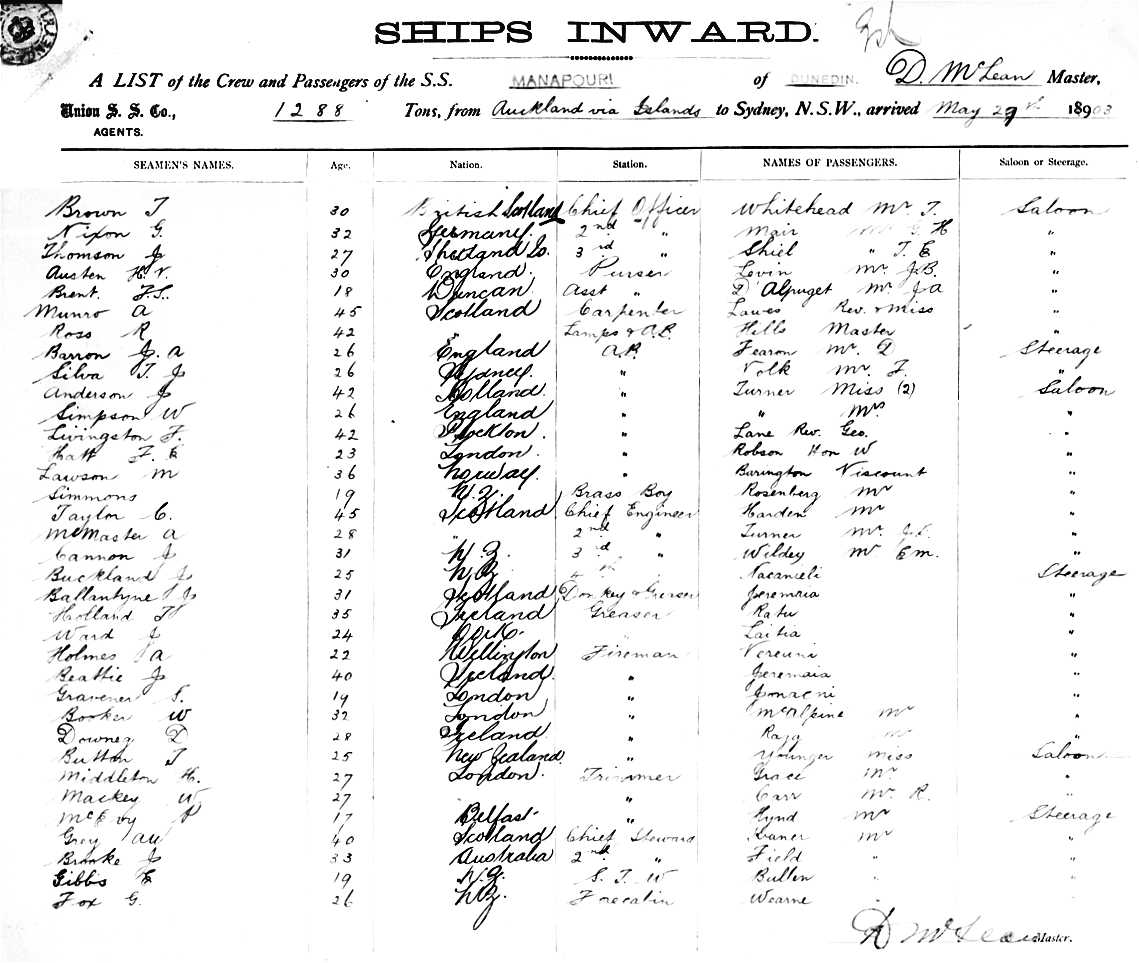 SHIPS INWARD.
A LIST of the Crew and Passengers of the S.S. MANAPOURI of DUNEDIN. D. McLean Master,
Union S. S. Co., 1288 Tons, from Auckland via Islands to Sydney, N.S.W., arrived May 29th 1903
AGENTS.
SEAMEN'S NAMES. Age. Nation. Station. NAMES OF PASSENGERS. Saloon or Steerage.
Brown T 30 British Scotland Chief Officer Whitehead Mr T. Saloon
Nixon G. 32 Germany. 2nd " Mair G H "
Thomson J 27 Shetland Is. 3rd " Shiel " T. E "
Austen H. V. 30 England. Purser Levin Mr J.B. "
Brent. F.S. 18 Duncan Asst " D'Alpuget Mr J a "
Munro A 45 Scotland Carpenter Lawes Rev. & Miss "
Ross R 42 " Lamps & A.B. Hills Master "
Barron J. a 26 England A.B. Fearon Mr. D Steerage
Silva T. J 26 Sydney. " Volk Mr. F. "
Anderson J 42 Holland. " Turner Miss (2) Saloon
Simpson W 26 England " " Mrs "
Livingston F. 42 Stockton. " Lane Rev. Geo. "
F. E 23 London. " Robson Hon W "
Lawson M 36 Norway. " Barington Viscount "
Simmons 19 N.Z. Brass Boy Rosenberg Mr "
Taylor C. 45 Scotland Chief Engineer Harden Mr "
McMaster a 28 " 2nd " Turner Mr. "
Cannon J 31 N.Z. 3rd " Wildey Mr E m. "
Buckland J 25 N.Z. 4th " Nacanieli Steerage
Ballantyne J 31 Scotland Donkey & Greaser Jeremaia "
Holland T 35 Ireland Greaser Ratu "
Ward J 24 Cork. " Laitia "
Holmes a 22 Wellington Fireman "
Beattie J 40 Ireland " Jeremaia "
Gravener S. 19 London " "
Booker W 32 London " McAlpine Mr "
Downey D 28 Ireland " Ragg Mr "
Button T 25 New Zealand. " Younger Miss Saloon
Middleton H. 27 London. Trimmer Grace Mr "
Mackey W 27 " Carr Mr. R. "
McEvoy P 17 Belfast " Hynd Mr Steerage
Grey 40 Scotland Chief Steward Mr "
Brooke J 33 Australia 2nd " Field " "
Gibbs E 19 N.Z. S. T. W Bullen " "
Fox G. 26 N.Z. Forecabin Wearne "
D McLean Master.